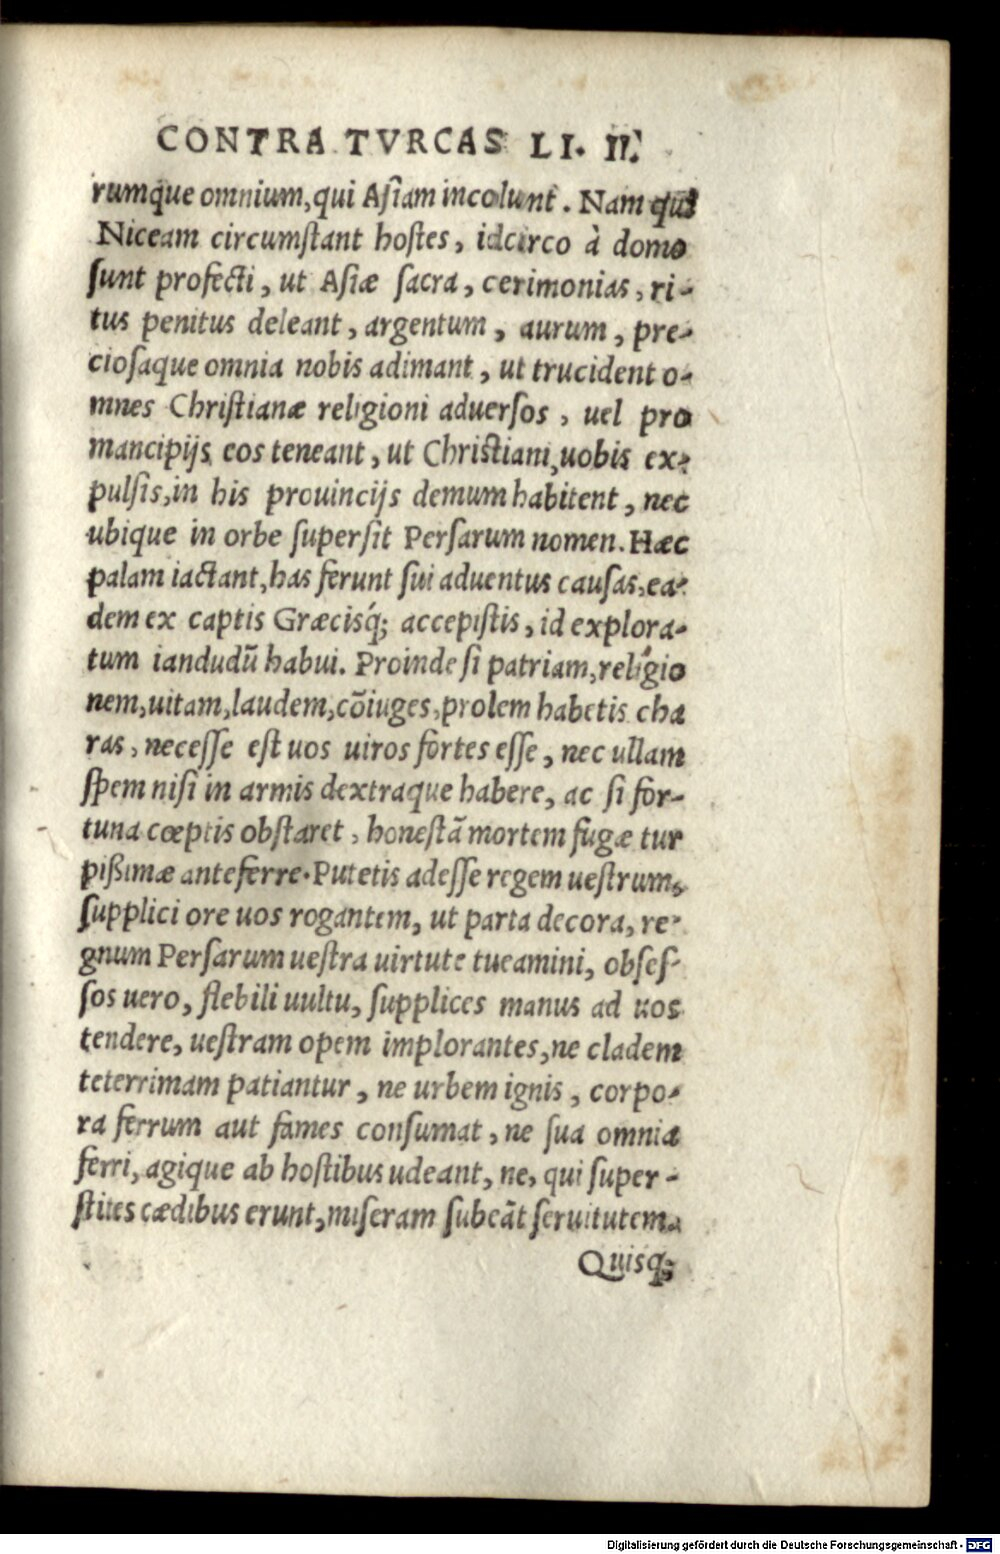 CONTRA TVRCAS LI. II.
rumque omnium, qui Asiam incolunt. Nam qui
Niceam circumstant hostes, idcirco à domo
sunt profecti, ut Asiæ sacra, cerimonias, ri-
tus penitus deleant, argentum, aurum, pre-
ciosaque omnia nobis adimant, ut trucident o-
mnes Christianæ religioni aduersos, uel pro
mancipijs eos teneant, ut Christiani, uobis ex-
pulsis, in his prouincijs demum habitent, nec
ubique in orbe supersit Persarum nomen. Hæc
palam iactant, has ferunt sui aduentus causas, ea-
dem ex captis Græcisq́; accepistis, id explora-
tum iandudũ habui. Proinde si patriam, religio
nem, uitam, laudem, cõiuges, prolem habetis cha
ras, necesse est uos uiros fortes esse, nec ullam
spem nisi in armis dextraque habere, ac si for-
tuna cœptis obstaret, honestã mortem fugæ tur
pißimæ anteferre. Putetis adesse regem uestrum,
supplici ore uos rogantem, ut parta decora, re-
gnum Persarum uestra uirtute tueamini, obses-
sos uero, flebili uultu, supplices manus ad uos
tendere, uestram opem implorantes, ne cladem
teterrimam patiantur, ne urbem ignis, corpo-
ra ferrum aut fames consumat, ne sua omnia
ferri, agique ab hostibus udeant, ne, qui super-
stites cædibus erunt, miseram subeãt seruitutem.
Quisq;
Digitalisierung gefördert durch die Deutsche Forschungsgemeinschaft - DFG